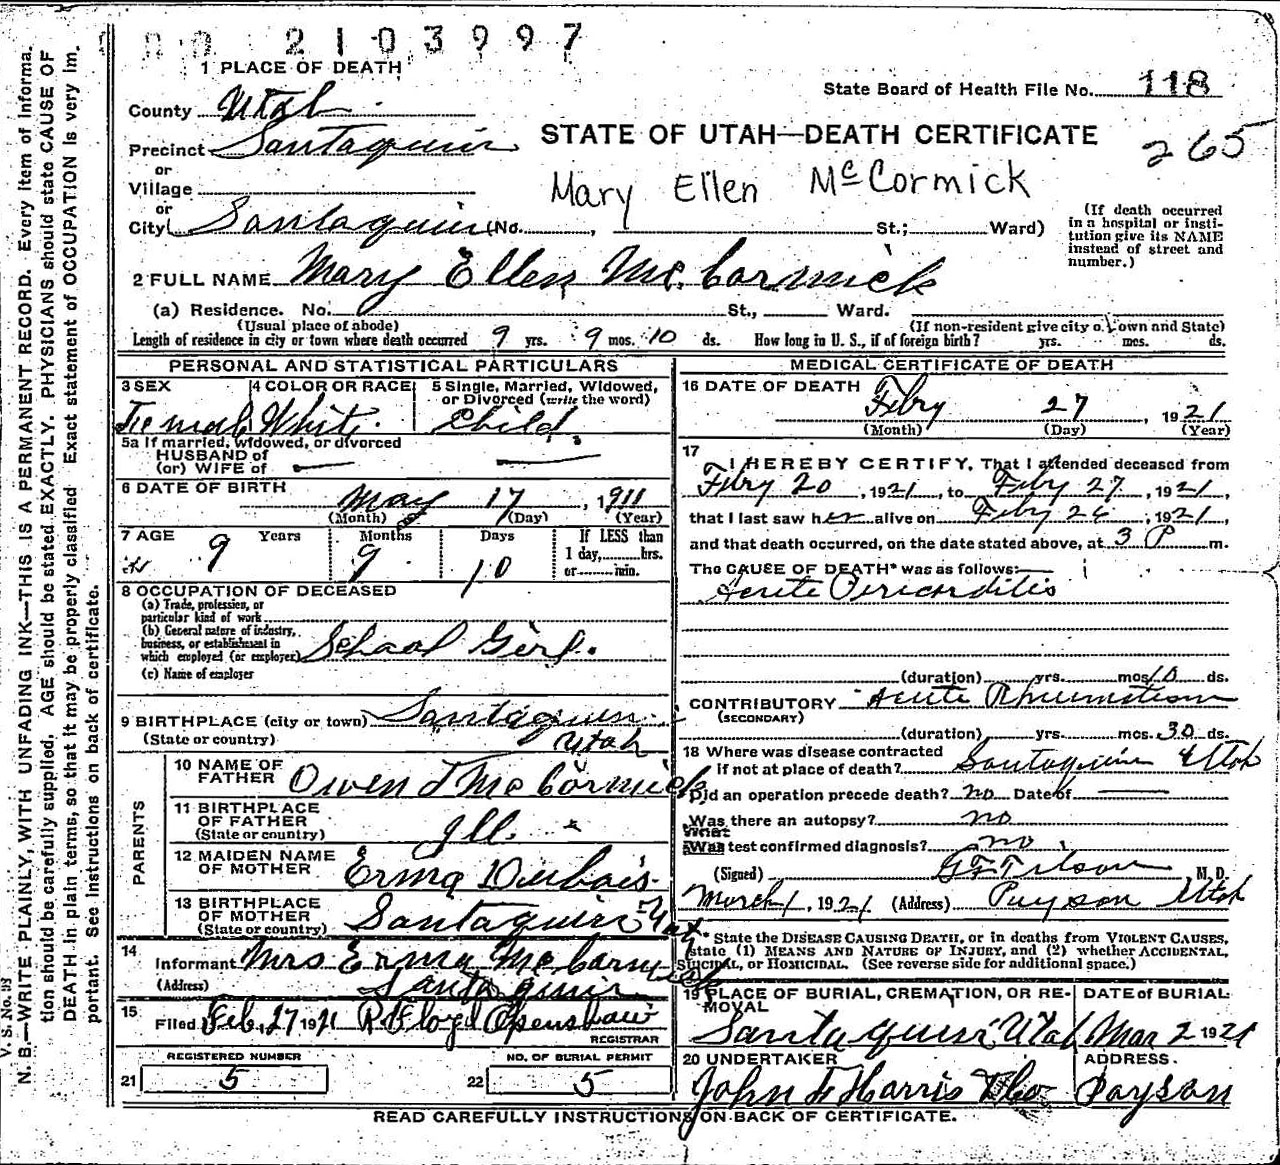 2103997
1 PLACE OF DEATH
State Board of Health File No. 118
County Utah
STATE OF UTAH—DEATH CERTIFICATE
265
Precinct Santaquin
or
Village
Mary Ellen McCormick
or
City Santaquin (No. , St.; Ward)
(If death occurred in a hospital or insti-
tution give its NAME
instead of street and
number.)
2 FULL NAME Mary Ellen McCormick
(a) Residence. No. St., Ward.
(Usual place of abode) (If non-resident give city or town and State)
Length of residence in city or town where death occurred 9 yrs. 9 mos. 10 ds. How long in U. S., if of foreign birth? yrs. mos. ds.
PERSONAL AND STATISTICAL PARTICULARS
3 SEX 4 COLOR OR RACE 5 Single, Married, Widowed,
or Divorced (write the word)
Female White Child
5a If married, widowed, or divorced
HUSBAND of
(or) WIFE of
6 DATE OF BIRTH
May 17, 1911
(Month) (Day) (Year)
7 AGE Years Months Days If LESS than
1 day, hrs.
or min.
9 9 10
8 OCCUPATION OF DECEASED
(a) Trade, profession, or
particular kind of work
(b) General nature of industry,
business, or establishment in
which employed (or employer) School Girl.
(c) Name of employer
9 BIRTHPLACE (city or town) Santaquin
(State or country) Utah
PARENTS
10 NAME OF
FATHER Owen J McCormick
11 BIRTHPLACE
OF FATHER
(State or country) Ill.
12 MAIDEN NAME
OF MOTHER Erma Dubois
13 BIRTHPLACE
OF MOTHER
(State or country) Santaquin Ut
14
Informant Mrs Erma McCormick
(Address) Santaquin
15
Filed Feb, 27 1921 R Floyd Openshaw
REGISTRAR
REGISTERED NUMBER NO. OF BURIAL PERMIT
21 5 22 5
MEDICAL CERTIFICATE OF DEATH
16 DATE OF DEATH
Febry 27, 1921
(Month) (Day) (Year)
17
I HEREBY CERTIFY, That I attended deceased from
Febry 20, 1921, to Febry 27, 1921,
that I last saw her alive on Febry 26, 1921,
and that death occurred, on the date stated above, at 3 P m.
The CAUSE OF DEATH* was as follows:
Acute Pericarditis
(duration) yrs. mos. 10 ds.
CONTRIBUTORY Acute Rheumatism
(SECONDARY)
(duration) yrs. mos. 30 ds.
18 Where was disease contracted
if not at place of death? Santaquin Utah
Did an operation precede death? no Date of
Was there an autopsy? no
What
Was test confirmed diagnosis? no
(Signed) M. D.
March 1, 1921 (Address) Payson Utah
* State the DISEASE CAUSING DEATH, or in deaths from VIOLENT CAUSES,
state (1) MEANS AND NATURE OF INJURY, and (2) whether ACCIDENTAL,
SUICIDAL, OR HOMICIDAL. (See reverse side for additional space.)
19 PLACE OF BURIAL, CREMATION, OR RE-
MOVAL DATE of BURIAL
Santaquin Utah Mar 2 1921
20 UNDERTAKER ADDRESS.
John F Harris & Co Payson
READ CAREFULLY INSTRUCTIONS ON BACK OF CERTIFICATE.
V. S. No. 93
N. B.—WRITE PLAINLY, WITH UNFADING INK—THIS IS A PERMANENT RECORD. Every item of informa-
tion should be carefully supplied. AGE should be stated EXACTLY. PHYSICIANS should state CAUSE OF
DEATH in plain terms, so that it may be properly classified. Exact statement of OCCUPATION is very im-
portant. See instructions on back of certificate.